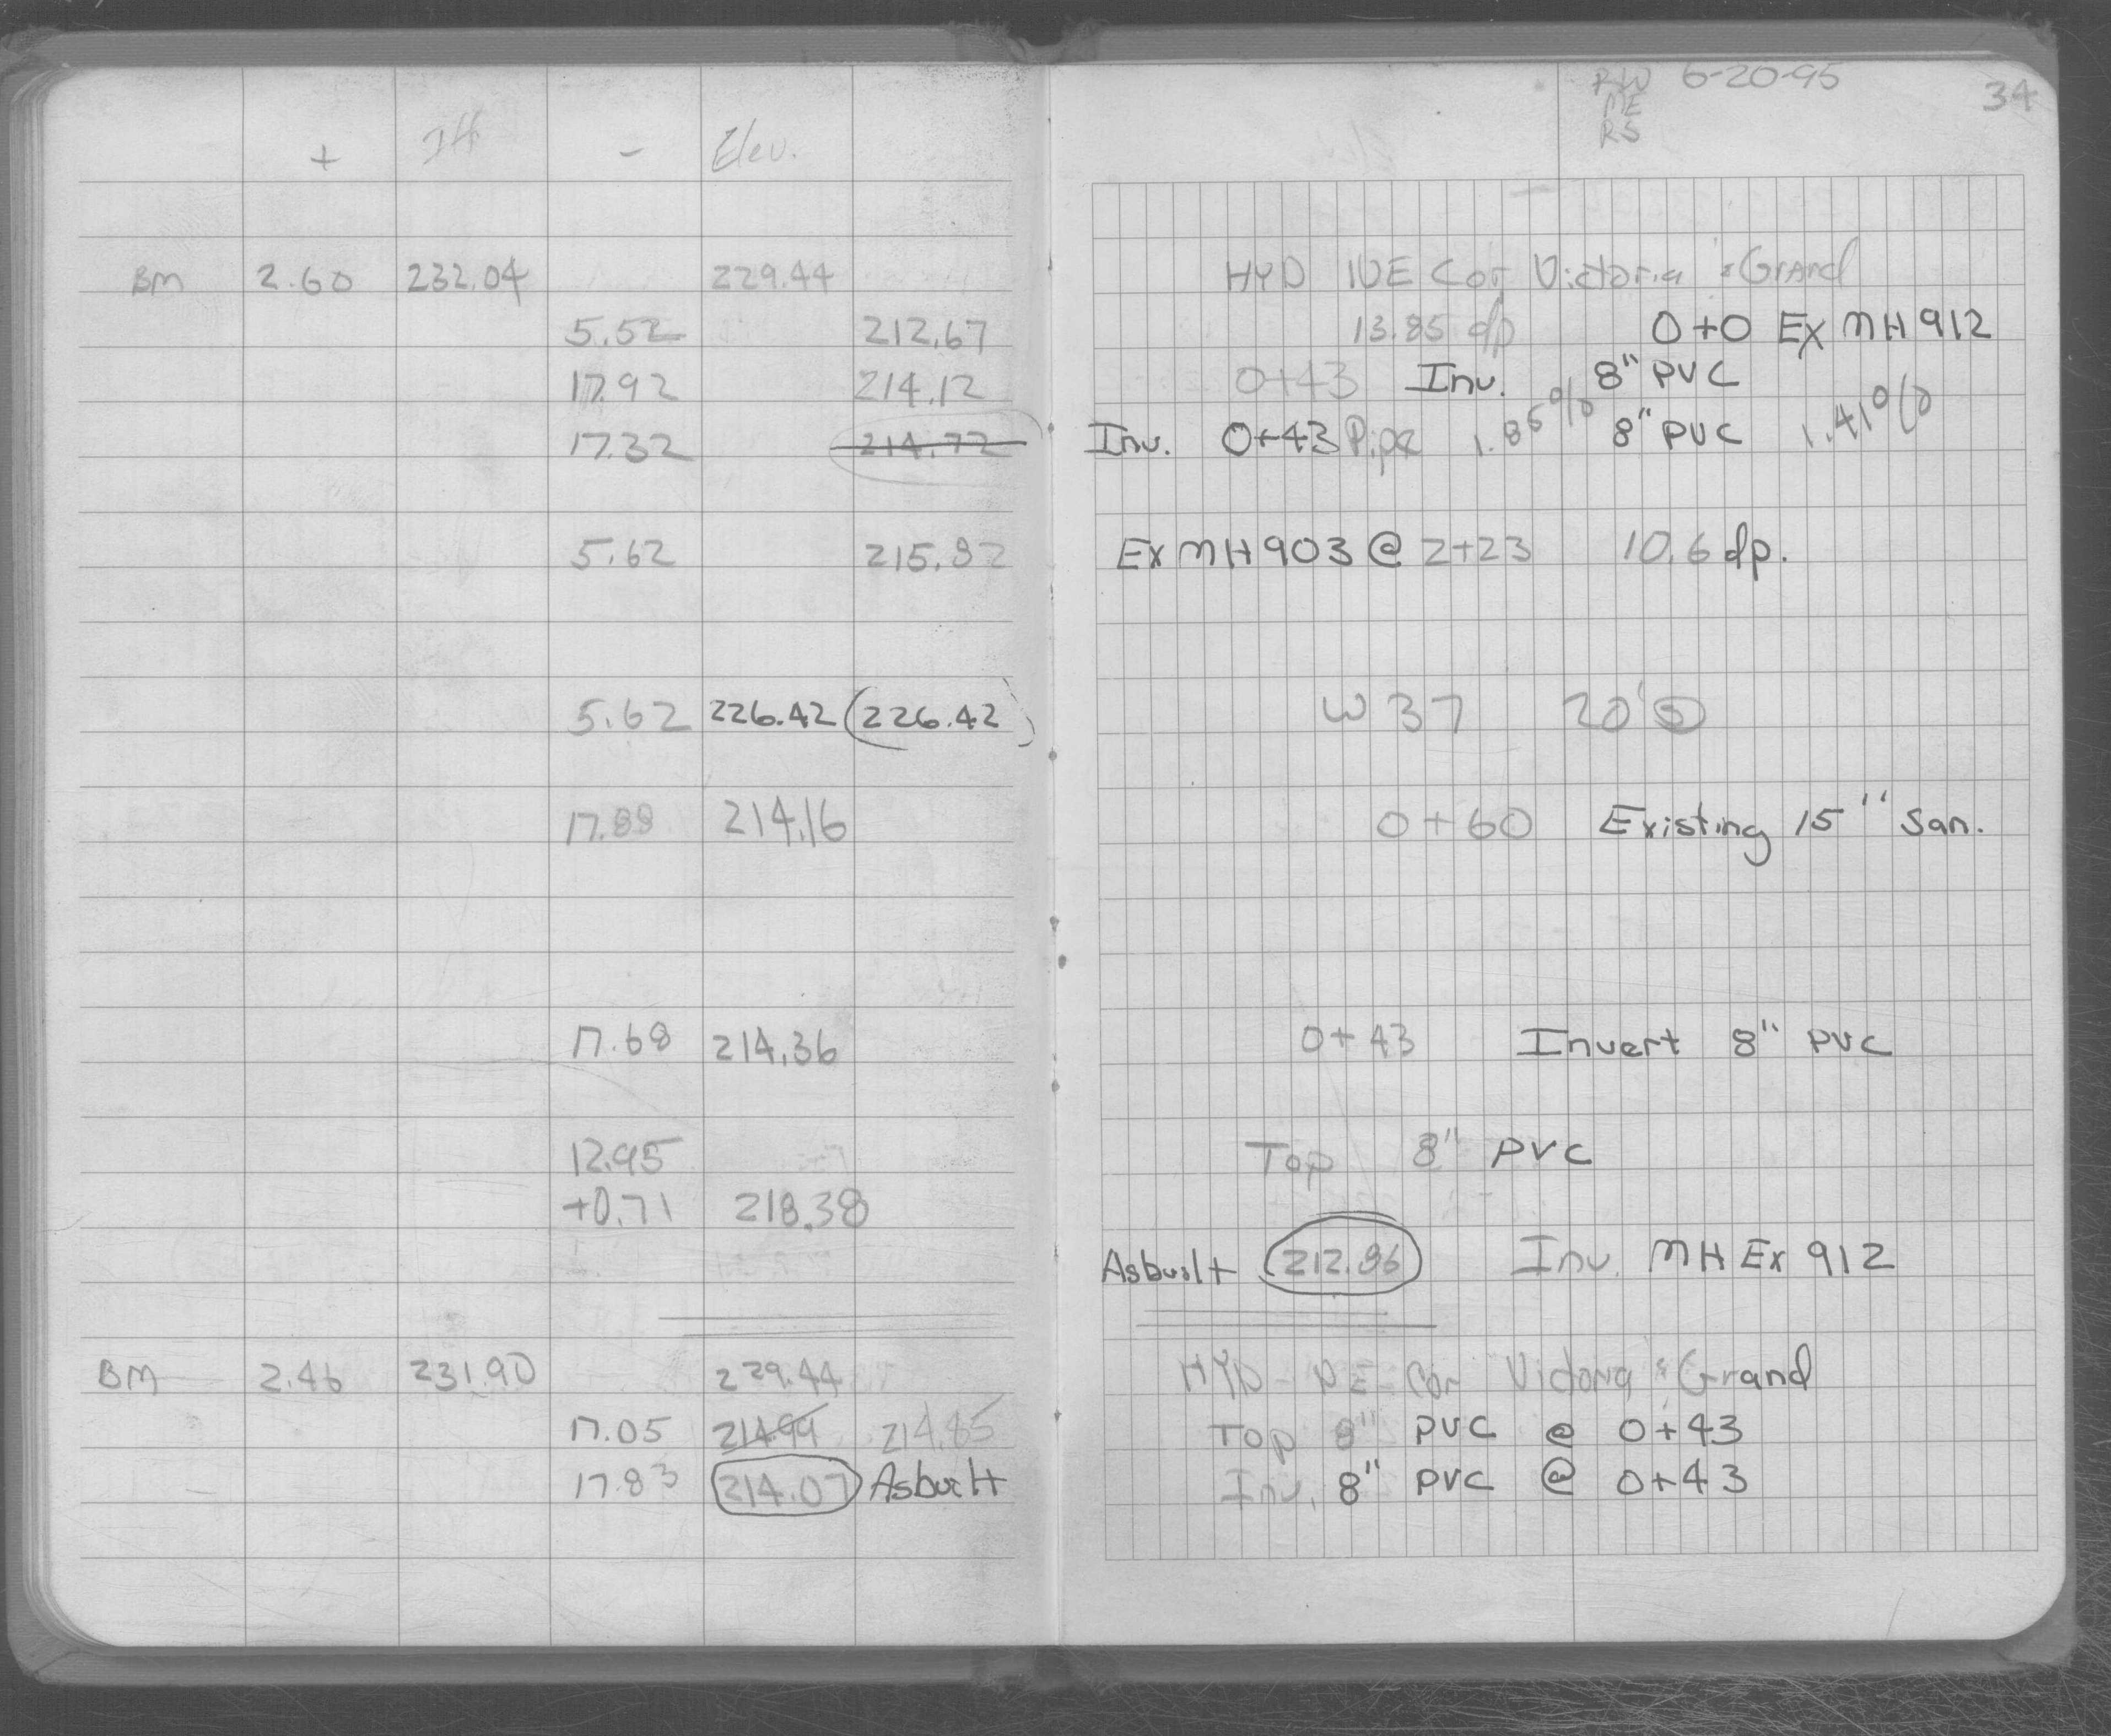 RW 6-20-95 34
ME
RS
+ - Elev.
BM 2.60 232.04 229.44 HYD NE Cor Victoria & Grand
5.52 212.67 13.85 dp 0+0 Ex MH 912
17.92 214.12 0+43 Inv. 8" PVC
17.32 214.72 Inv. 0+43 Pipe 1.85% 8" PVC 1.41%
5.62 215.82 Ex MH 903 @ 2+23 10.6 dp.
5.62 226.42 (226.42) W 37 20' S
17.88 214.16 0+60 Existing 15" San.
17.68 214.36 0+43 Invert 8" PVC
12.95 Top 8" PVC
+0.71 218.38
Asbuilt 212.86 Inv. MH Ex 912
BM 2.46 231.90 229.44 HYD - NE - Cor Victoria & Grand
17.05 214.94 214.85 Top 8" PVC @ 0+43
17.83 214.07 Asbuilt Inv. 8" PVC @ 0+43